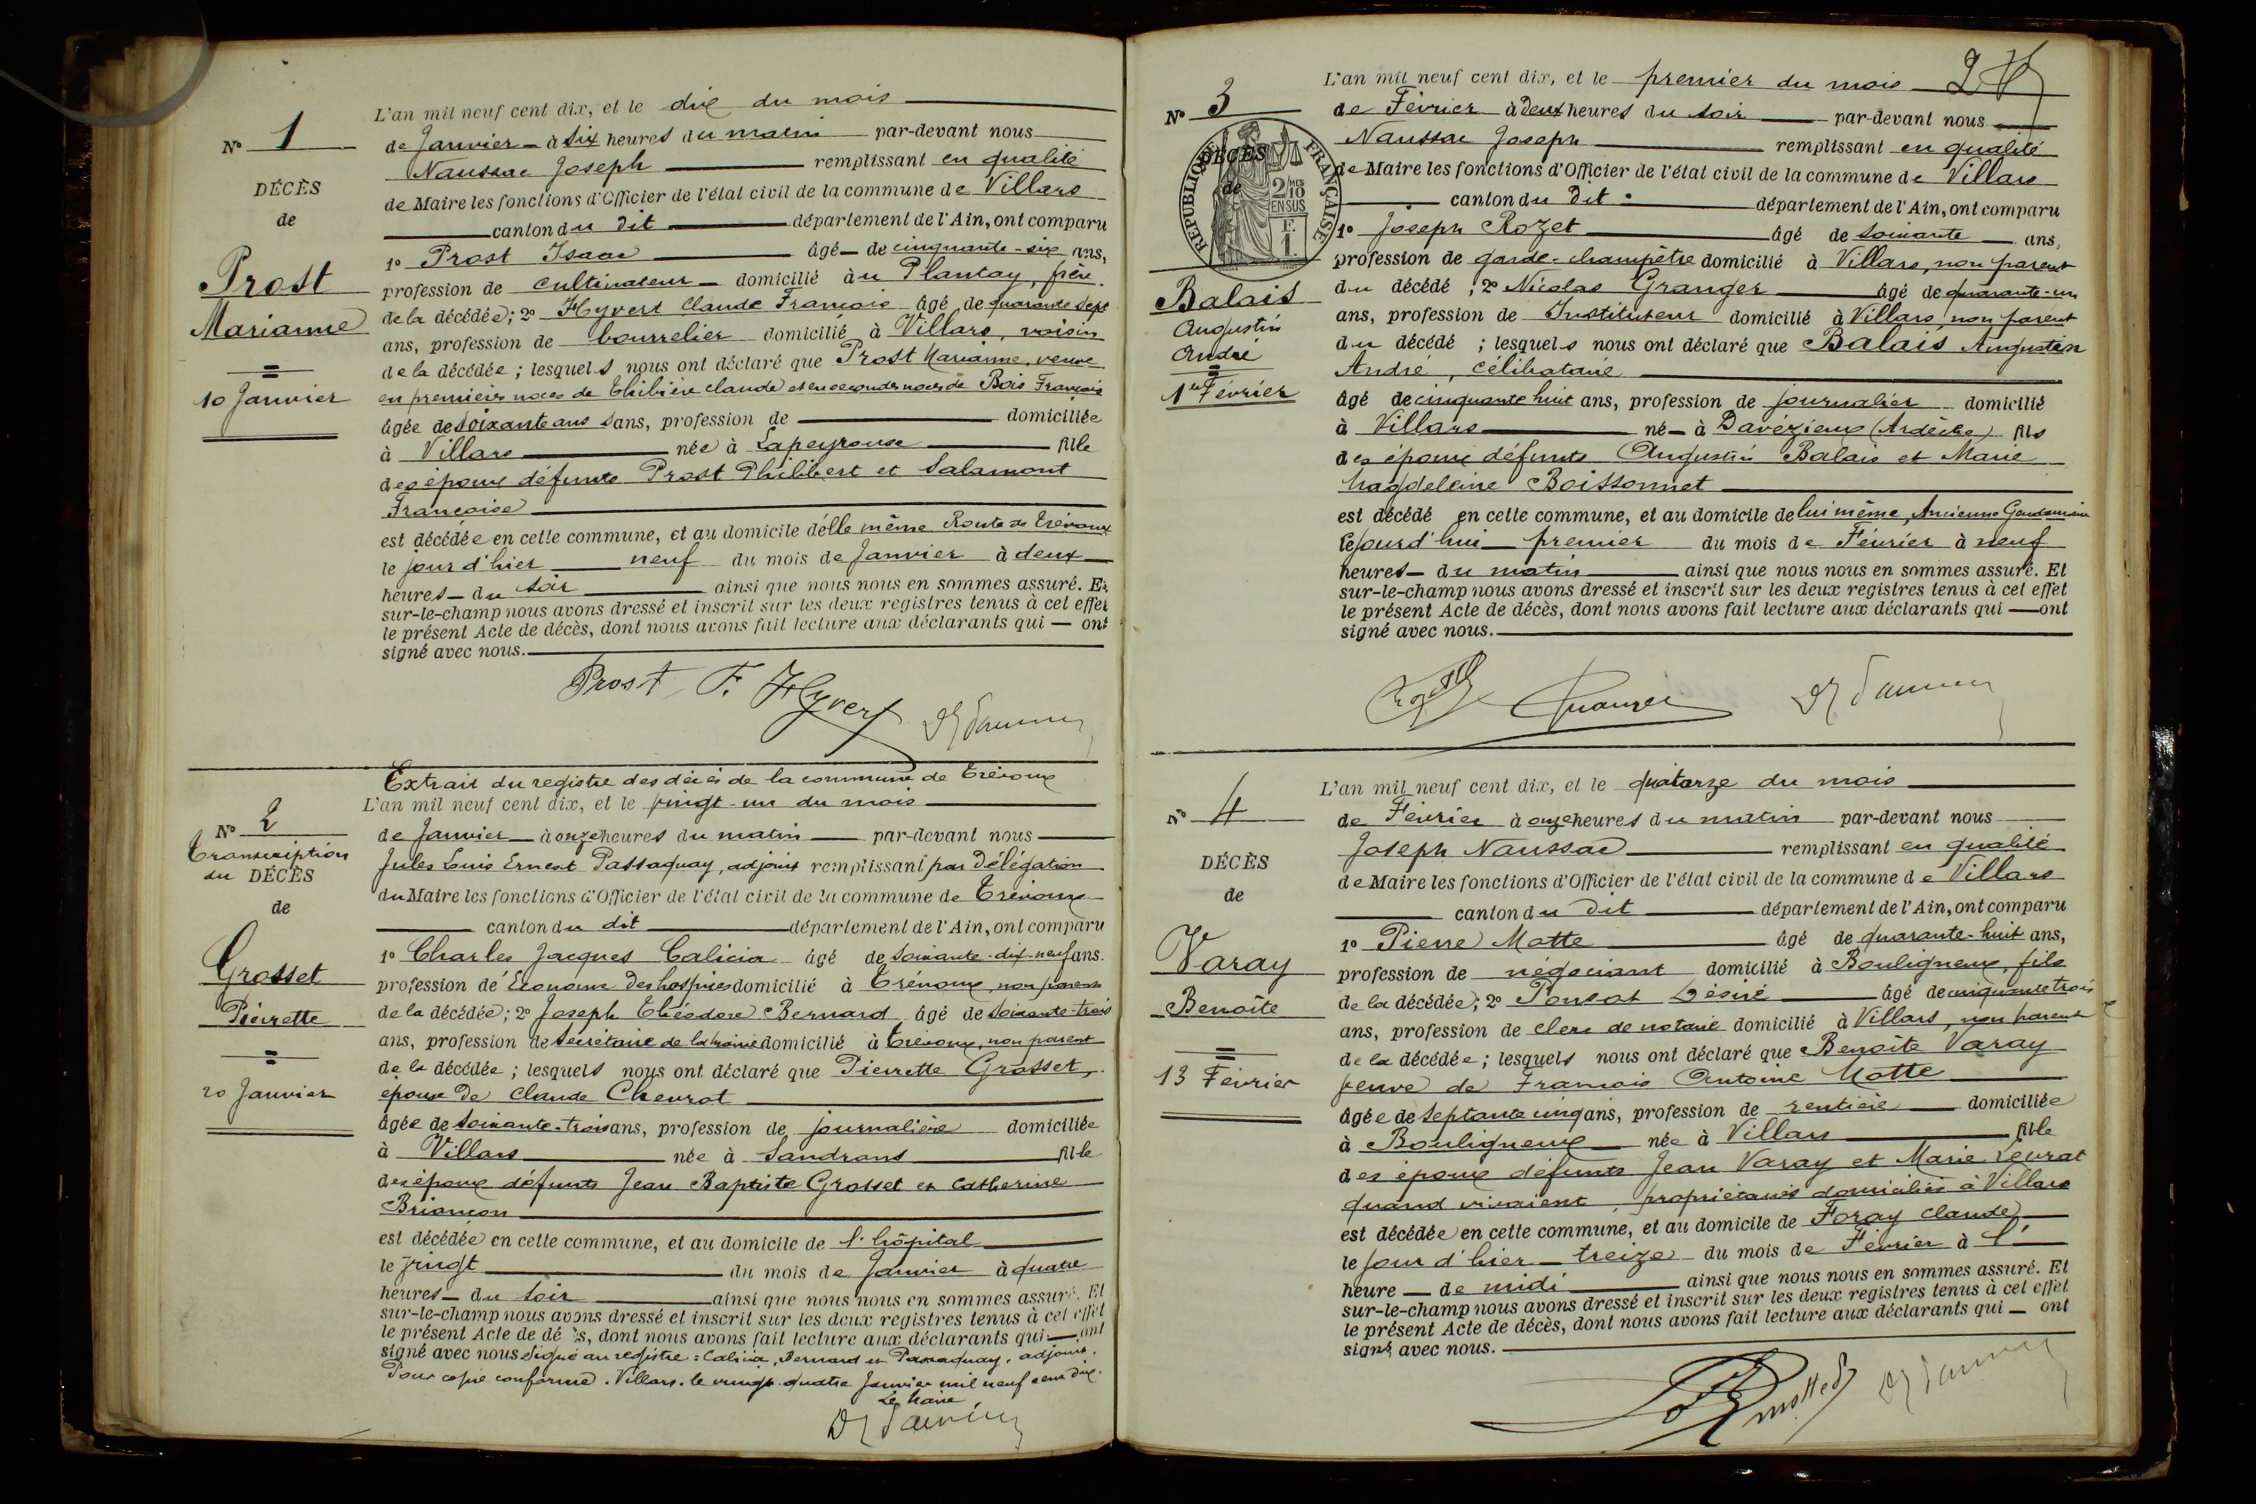 N° 1
DÉCÈS
de
Prost
Marianne
10 Janvier
L'an mil neuf cent dix, et le dix du mois
de Janvier à six heures du matin par-devant nous
Naussac Joseph remplissant en qualité
de Maire les fonctions d'Officier de l'état civil de la commune de Villars
canton du dit département de l'Ain, ont comparu
1° Prost Isaac âgé de cinquante-six ans,
profession de cultivateur domicilié au Plantay, frère
de la décédée; 2° Hyvert Claude François âgé de quarante sept
ans, profession de bourrelier domicilié à Villars, voisin
de la décédée; lesquels nous ont déclaré que Prost Marianne, veuve
en premières noces de Thibière Claude et en secondes noces de Bois François
âgée de soixante ans sans, profession de domiciliée
à Villars née à Lapeyrouse fille
des époux défunts Prost Philibert et Salamont
Françoise
est décédée en cette commune, et au domicile d'elle même Route de Trévoux
le jour d'hier neuf du mois de Janvier à deux
heures du soir ainsi que nous nous en sommes assuré. Et
sur-le-champ nous avons dressé et inscrit sur les deux registres tenus à cet effet
le présent Acte de décès, dont nous avons fait lecture aux déclarants qui ont
signé avec nous.
Prost F. Hyvert
N° 2
Transcription
du DÉCÈS
de
Grosset
Pierrette
20 Janvier
Extrait du registre des décès de la commune de Trévoux
L'an mil neuf cent dix, et le vingt-un du mois
de Janvier à onze heures du matin par-devant nous
Jules Louis Ernest Passaquay, adjoint remplissant par délégation
du Maire les fonctions d'Officier de l'état civil de la commune de Trévoux
canton du dit département de l'Ain, ont comparu
1° Charles Jacques Calicia âgé de soixante-dix-neuf ans.
profession d'Econome des hospices domicilié à Trévoux, non parent
de la décédée; 2° Joseph Théodore Bernard âgé de soixante-trois
ans, profession de secrétaire de la mairie domicilié à Trévoux, non parent
de la décédée; lesquels nous ont déclaré que Pierrette Grosset,
épouse de Claude Chevrot
âgée de soixante-trois ans, profession de journalière domiciliée
à Villars née à Sandrans fille
des époux défunts Jean Baptiste Grosset et Catherine
Briançon
est décédée en cette commune, et au domicile de l'hôpital
le vingt du mois de Janvier à quatre
heures du soir ainsi que nous nous en sommes assuré. Et
sur-le-champ nous avons dressé et inscrit sur les deux registres tenus à cet effet
le présent Acte de décès, dont nous avons fait lecture aux déclarants qui ont
signé avec nous signé au registre: Calicia, Bernard et Passaquay, adjoint.
Pour copie conforme. Villars, le vingt-quatre Janvier mil neuf cent dix.
Le Maire
2
N° 3
DÉCÈS
de
RÉPUBLIQUE FRANÇAISE
2/10
EN SUS
F.
1.
Balais
Augustin
André
1er Février
L'an mil neuf cent dix, et le premier du mois
de Février à deux heures du soir par-devant nous
Naussac Joseph remplissant en qualité
de Maire les fonctions d'Officier de l'état civil de la commune de Villars
canton du dit département de l'Ain, ont comparu
1° Joseph Rozet âgé de soixante ans,
profession de garde-champêtre domicilié à Villars, non parent
du décédé; 2° Nicolas Granger âgé de quarante-un
ans, profession de Instituteur domicilié à Villars, non parent
du décédé; lesquels nous ont déclaré que Balais Augustin
André, célibataire
âgé de cinquante huit ans, profession de journalier domicilié
à Villars né à Davézieux (Ardèche) fils
des époux défunts Augustin Balais et Marie
Magdeleine Boissonnet
est décédé en cette commune, et au domicile de lui même, Ancienne Gendarmerie
le jourd'hui premier du mois de Février à neuf
heures du matin ainsi que nous nous en sommes assuré. Et
sur-le-champ nous avons dressé et inscrit sur les deux registres tenus à cet effet
le présent Acte de décès, dont nous avons fait lecture aux déclarants qui ont
signé avec nous.
Granger
N° 4
DÉCÈS
de
Varay
Benoîte
13 Février
L'an mil neuf cent dix, et le quatorze du mois
de Février à onze heures du matin par-devant nous
Joseph Naussac remplissant en qualité
de Maire les fonctions d'Officier de l'état civil de la commune de Villars
canton du dit département de l'Ain, ont comparu
1° Pierre Motte âgé de quarante-huit ans,
profession de négociant domicilié à Bouligneux, fils
de la décédée; 2° Ponsot Désiré âgé de cinquante trois
ans, profession de clerc de notaire domicilié à Villars, non parent
de la décédée; lesquels nous ont déclaré que Benoîte Varay
veuve de François Antoine Motte
âgée de septante cinq ans, profession de rentière domiciliée
à Bouligneux née à Villars fille
des époux défunts Jean Varay et Marie Levrat
quand vivaient, propriétaires domiciliés à Villars
est décédée en cette commune, et au domicile de Foray Claude
le jour d'hier treize du mois de Février à l'
heure de midi ainsi que nous nous en sommes assuré. Et
sur-le-champ nous avons dressé et inscrit sur les deux registres tenus à cet effet
le présent Acte de décès, dont nous avons fait lecture aux déclarants qui ont
signé avec nous.